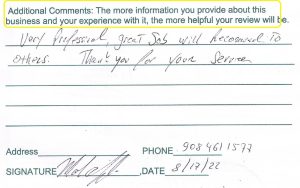 Additional Comments: The more information you provide about this
business and your experience with it, the more helpful your review will be.
Very Professional, great Job will Recommend To
others. Thank you for your Service.
Address PHONE 908 461 1577
SIGNATURE ,DATE 8/17/22